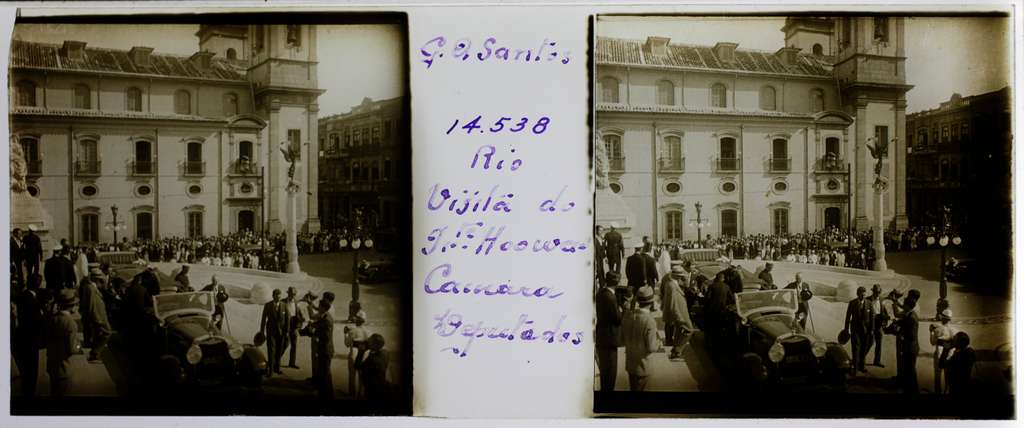 G. O. Santos
14.538
Rio
Visita do
Hoover
Camara
Deputados